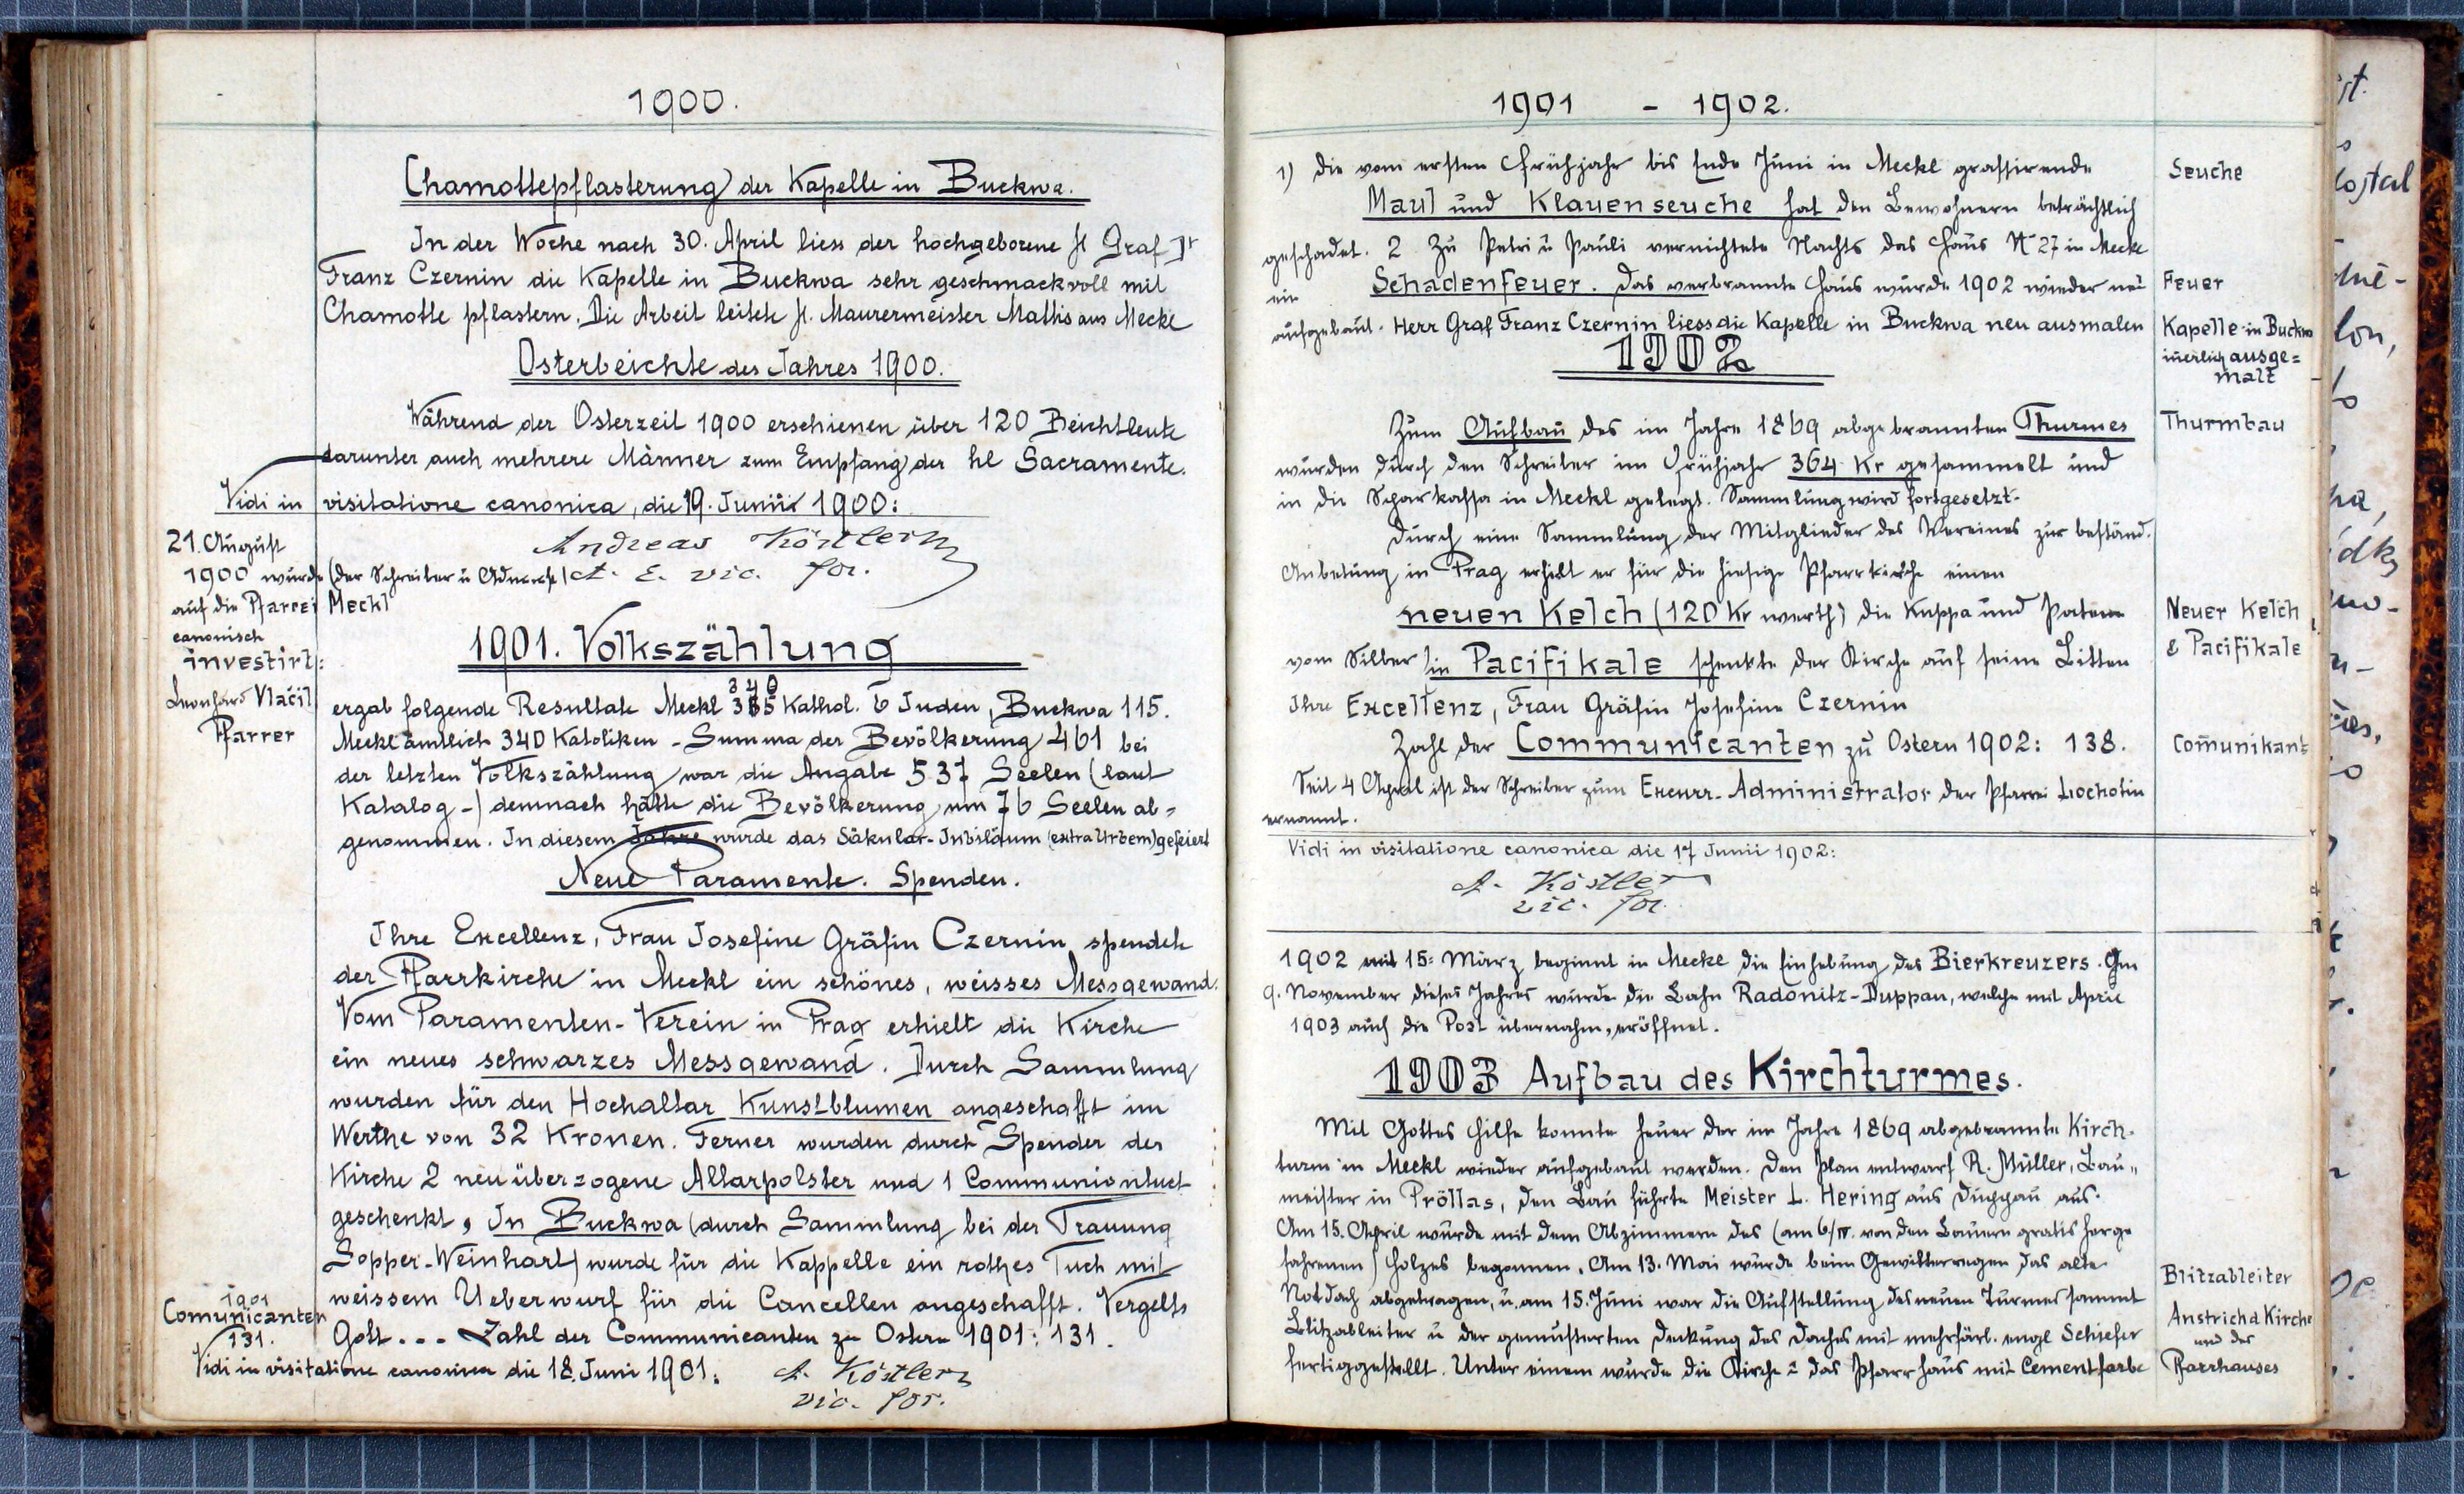 1900.
Chamottepflasterung der Kapelle in Buckwa.
In der Woche nach 30. April liess der hochgeborene H Graf Dr
Franz Czernin die Kapelle in Buckwa sehr geschmackvoll mit
Chamotte pflastern. Die Arbeit leitete H. Maurermeister Mattis aus Meckl
Osterbeichte des Jahres 1900.
Während der Osterzeit 1900 erschienen über 120 Beichtleute
darunter auch mehrere Männer zum Empfang der hl Sacramente.
Vidi in visitatione canonica, die 19. Junii 1900:
Andreas Köstler
A. E. vic. for.
21. August
1900 wurde (der Schreiber u
auf die Pfarrei Meckl
canonisch
investirt:
Leonhard Vlačil
Pfarrer
1901. Volkszählung
340
ergab folgende Resultate Meckl 355 Kathol. 6 Juden, Buckwa 115.
Meckl ämtlich 340 Katoliken - Summa der Bevölkerung 461 bei
der letzten Volkszählung war die Angabe 537 Seelen (laut
Katalog -) demnach hätte die Bevölkerung um 76 Seelen ab=
genommen. In diesem Jahre wurde das Säkular-Jubiläum (extra Urbem) gefeiert
Neue Paramente. Spenden.
Ihre Excellenz, Frau Josefine Gräfin Czernin spendete
der Pfarrkirche in Meckl ein schönes, weisses Messgewand.
Vom Paramenten-Verein in Prag erhielt die Kirche
ein neues schwarzes Messgewand. Durch Sammlung
wurden für den Hochaltar Kunstblumen angeschafft im
Werthe von 32 Kronen. Ferner wurden durch Spender der
Kirche 2 neu überzogene Altarpolster und 1 Communiontuch
geschenkt, In Buckwa (durch Sammlung bei der Trauung
Sopper-Weinhart) wurde für die Kappelle ein rothes Tuch mit
weissem Ueberwurf für die Cancellen angeschafft. Vergelts
Gott... Zahl der Communicanten zu Ostern 1901: 131.
1901
Comunicanten
131.
Vidi in visitatione canonica die 18. Juni 1901.
A. Köstler
vic. for.
1901 - 1902.
1) Die vom ersten Frühjahr bis Ende Juni in Meckl grassirende
Maul und Klauenseuche hat den Bewohnern beträchtlich
geschadet. 2 Zu Petri u Pauli vernichtete Nachts das Haus N 27 in Meckl
ein Schadenfeuer. Das verbrannte Haus wurde 1902 wieder neu
aufgebaut. Herr Graf Franz Czernin liess die Kapelle in Buckwa neu ausmalen
Seuche
Feuer
Kapelle in Buckwa
innerlich ausge=
malt
1902
Zum Aufbau des im Jahre 1869 abgebrannten Thurmes
wurden durch den Schreiber im Frühjahr 364 Kr gesammelt und
in die Sparkassa in Meckl gelegt. Sammlung wird fortgesetzt.
Durch eine Sammlung der Mitglieder des Vereines zur beständ.
Anbetung in Prag erhielt er für die hiesige Pfarrkirche einen
neuen Kelch (120 Kr werth) die Kuppa und Patene
vom Silber ein Pacifikale schenkte der Kirche auf seine Bitten
Ihre Excellenz, Frau Gräfin Josefine Czernin
Zahl der Communicanten zu Ostern 1902: 138.
Seit 4 April ist der Schreiber zum Excurr. Administrator der Pfarrei Lochotin
ernannt.
Thurmbau
Neuer Kelch
& Pacifikale
Com̄unikant
Vidi in visitatione canonica die 17 Junii 1902:
A. Köstler
vic. for.
1902 mit 15= März beginnt in Meckl die Einhebung des Bierkreuzers. Am
9. November dieses Jahres wurde die Bahn Radonitz-Duppau, welche mit April
1903 auch die Post übernahm, eröffnet.
1903 Aufbau des Kirchturmes.
Mit Gottes Hilfe konnte heuer der im Jahre 1869 abgebrannte Kirch-
turm in Meckl wieder aufgebaut werden. Den Plan entwarf R. Müller, Bau„
meister in Pröllas, den Bau führte Meister L. Hering aus Duppau aus.
Am 15. April wurde mit dem Abzimmern des (am 6/IV. von den Bauern gratis herge
fahrenen) Holzes begonnen. Am 13. Mai wurde beim Gewitterregen das alte
Notdach abgetragen, u. am 15. Juni war die Aufstellung des neuen Turmes sammt
Blitzableiter u der gemusterten Deckung des Daches mit mehrfärb. engl Schiefer
fertiggestellt. Unter einem wurde die Kirche & das Pfarrhaus mit Cementfarbe
Blitzableiter
Anstrich d Kirche
und des
Pfarrhauses